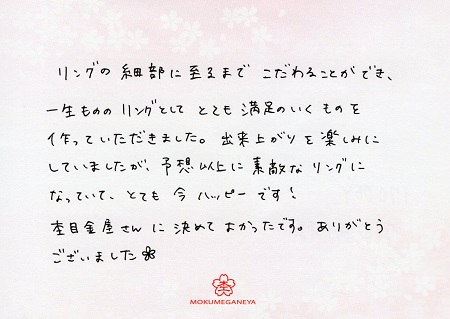 リングの細部に至るまで こだわることができ、
一生もののリングとして とても満足のいくものを
作っていただきました。出来上がりを楽しみに
していましたが、予想以上に素敵なリングに
なっていて、とても今ハッピーです!
杢目金屋さんに決めてよかったです。ありがとう
ございました
MOKUMEGANEYA